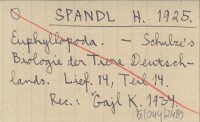 SPANDL H. 1925.
Euphyllopoda. — Schulze's
Biologie der Tiere Deutsch-
lands. Lief. 14, Teil 14.
Rec.: Gajl K. 1934.